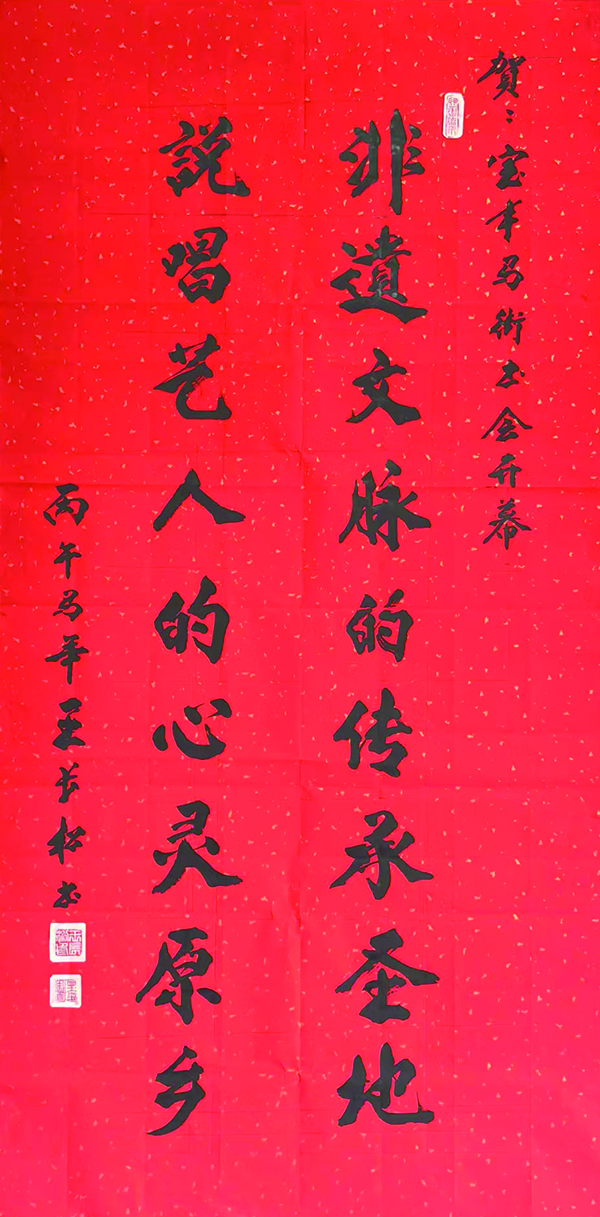 賀：宝丰马街书会开幕
非遺文脉的传承圣地
説唱艺人的心灵原乡
丙午马年王长松书